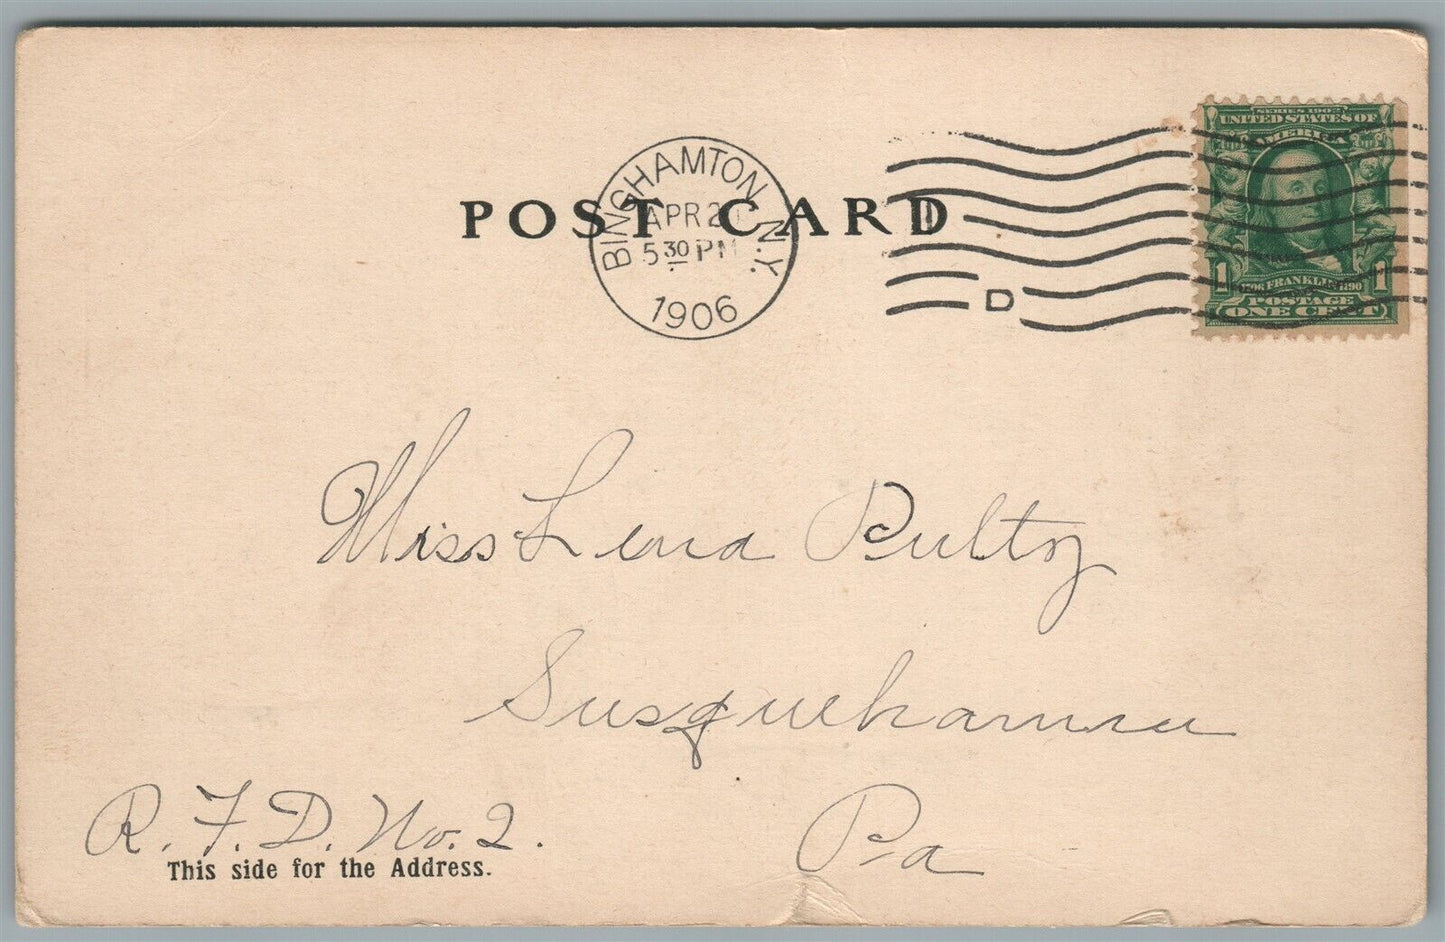 POST CARD
BINGHAMTON, N.Y.
APR 2
5 30 PM
1906
D
SERIES 1902
UNITED STATES OF
AMERICA
1 FRANKLIN 1
POSTAGE
ONE CENT
Miss Lena
Susquehanna
R. F. D. No. 2.
Pa
This side for the Address.